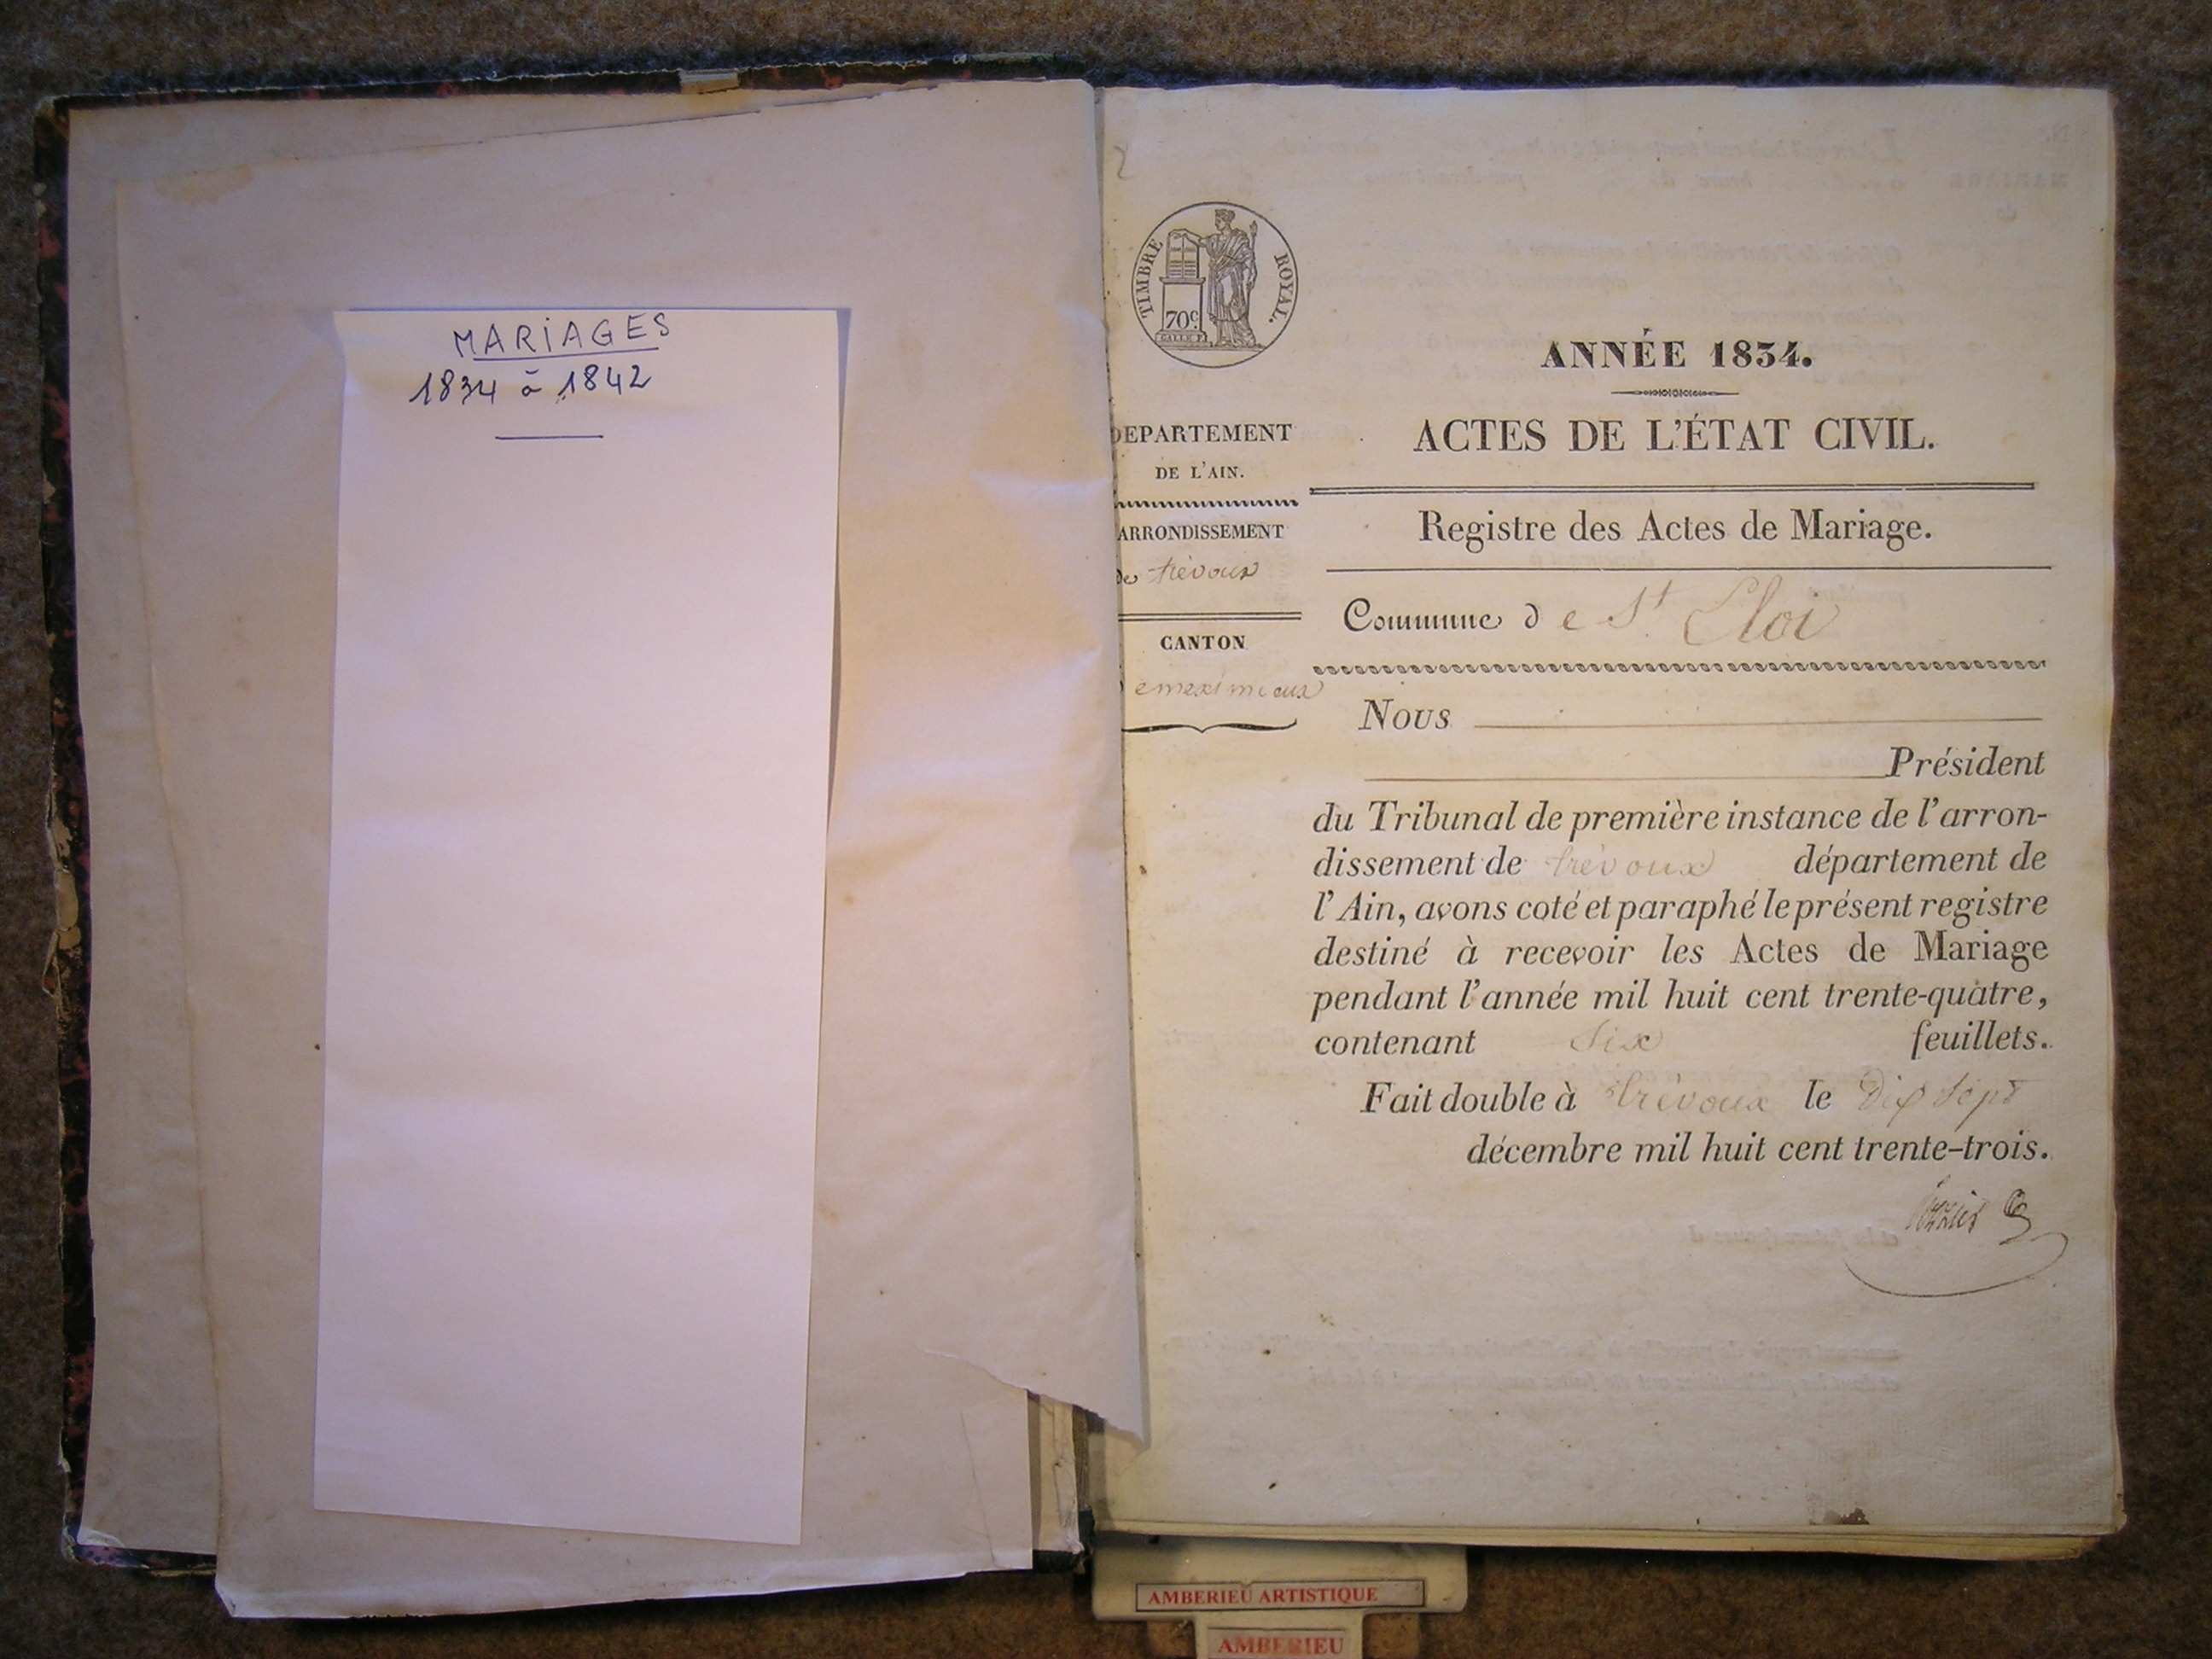 MARIAGES
1834 à 1842
2
TIMBRE ROYAL.
70c
ANNÉE 1834.
ACTES DE L'ÉTAT CIVIL.
Registre des Actes de Mariage.
DEPARTEMENT
DE L'AIN.
ARRONDISSEMENT
de trévoux
CANTON
emeximieux
Commune de St. Eloi
Nous
Président
du Tribunal de première instance de l'arron-
dissement de trévoux département de
l'Ain, avons coté et paraphé le présent registre
destiné à recevoir les Actes de Mariage
pendant l'année mil huit cent trente-quatre,
contenant six feuillets.
Fait double à trévoux le dix sept
décembre mil huit cent trente-trois.
AMBERIEU ARTISTIQUE
AMBERIEU